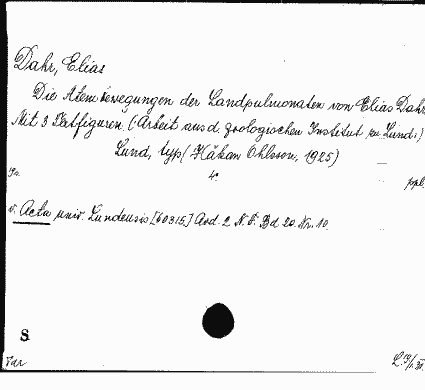 Dahr, Elias
Die Atembewegungen der Landpulmonaten von Elias Dahr
Mit 3 Textfiguren. (Arbeit aus d. zoologischen Institut zu Lund.)
Lund, typ. (Håkan Ohlsson, 1925)
4°
ppl.
v. Acta univ. Lundensis [60315] Avd. 2 N. F. Bd 20. Nr. 10.
S
Var